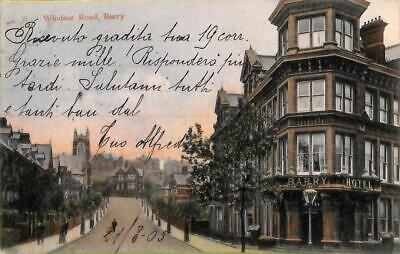 Windsor Road, Barry
Ricevuto gradita tua 19 corr.
Grazie mille. Risponderò più
tardi. Salutami tutti
e tanti baci dal
tuo Alfredo
BARRY HOTEL
21/8-05